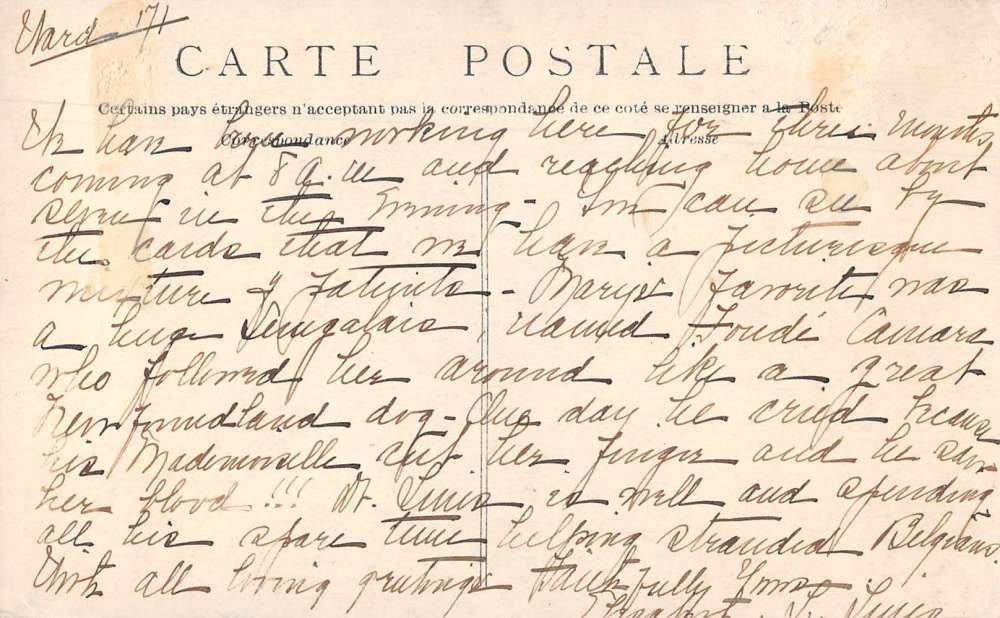 Ward 171
CARTE POSTALE
Certains pays étrangers n'acceptant pas la correspondance de ce coté se renseigner a la Poste
Correspondance Adresse
We have been working here for three months,
coming at 8 a.m and reaching home about
seven in the Evening - You can see by
the cards that we have a picturesque
mixture of Patients - Mary's Favorite was
a huge Senegalais named Foudé Camara
who followed her around like a great
Newfoundland dog - One day he cried because
his Mademoiselle cut her finger and he saw
her blood !!! Dr. is well and spending
all his spare time helping stranded Belgians.
With all loving greetings Faithfully Yours